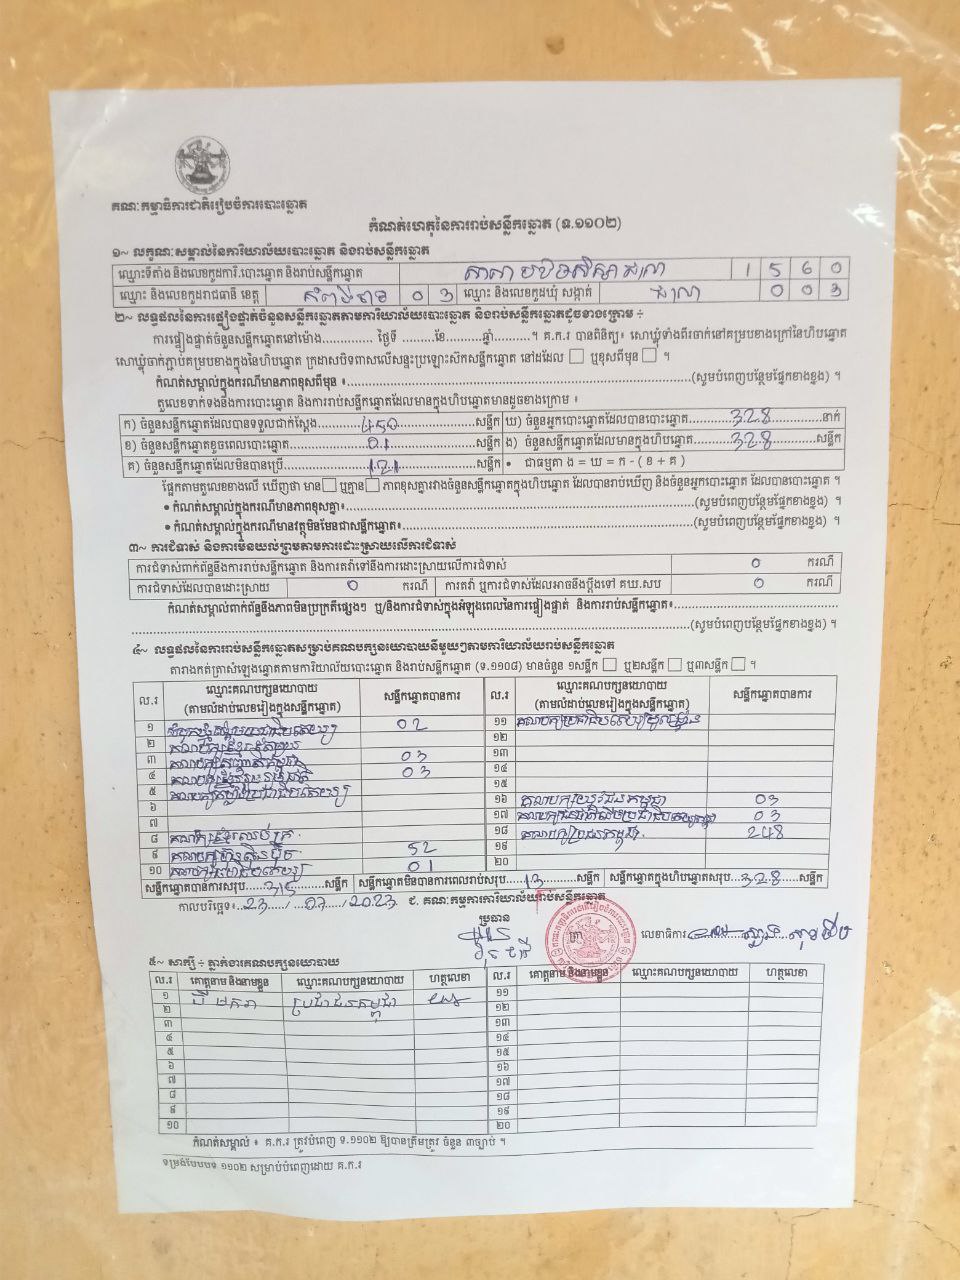 គណៈកម្មាធិការជាតិរៀបចំការបោះឆ្នោត
កំណត់ហេតុនៃការរាប់សន្លឹកឆ្នោត (ទ.១១០២)
១~ លក្ខណៈសម្គាល់នៃការិយាល័យបោះឆ្នោត និងរាប់សន្លឹកឆ្នោត
ឈ្មោះទីតាំង និងលេខកូដការិ.បោះឆ្នោត និងរាប់សន្លឹកឆ្នោត 1 5 6 0
ឈ្មោះ និងលេខកូដរាជធានី ខេត្ត កំពង់ចាម 0 3 ឈ្មោះ និងលេខកូដឃុំ សង្កាត់ 0 0 3
២~ លទ្ធផលនៃការផ្ទៀងផ្ទាត់ចំនួនសន្លឹកឆ្នោតតាមការិយាល័យបោះឆ្នោត និងរាប់សន្លឹកឆ្នោតដូចខាងក្រោម ÷
ការផ្ទៀងផ្ទាត់ចំនួនសន្លឹកឆ្នោតនៅម៉ោង.............. ថ្ងៃទី .........ខែ..........ឆ្នាំ..........។ គ.ក.រ បានពិនិត្យ៖ សោឃ្លុំទាំងពីរចាក់នៅគម្របខាងក្រៅនៃហិបឆ្នោត
សោឃ្លុំចាក់ភ្ជាប់គម្របខាងក្នុងនៃហិបឆ្នោត ក្រដាសបិទពាសលើសន្ទះប្រឡោះស៊កសន្លឹកឆ្នោត នៅដដែល ឬខុសពីមុន ។
កំណត់សម្គាល់ក្នុងករណីមានភាពខុសពីមុន ៖..........(សូមបំពេញបន្ថែមផ្នែកខាងខ្នង) ។
តួលេខទាក់ទងនឹងការបោះឆ្នោត និងការរាប់សន្លឹកឆ្នោតដែលមានក្នុងហិបឆ្នោតមានដូចខាងក្រោម ៖
ក) ចំនួនសន្លឹកឆ្នោតដែលបានទទួលជាក់ស្តែង......450......សន្លឹក ឃ) ចំនួនអ្នកបោះឆ្នោតដែលបានបោះឆ្នោត......328......នាក់
ខ) ចំនួនសន្លឹកឆ្នោតខូចពេលបោះឆ្នោត......01......សន្លឹក ង) ចំនួនសន្លឹកឆ្នោតដែលមានក្នុងហិបឆ្នោត......328......សន្លឹក
គ) ចំនួនសន្លឹកឆ្នោតដែលមិនបានប្រើ......121......សន្លឹក • ជាធម្មតា ង = ឃ = ក - ( ខ + គ )
ផ្អែកតាមតួលេខខាងលើ ឃើញថា មាន ឬគ្មាន ភាពខុសគ្នារវាងចំនួនសន្លឹកឆ្នោតក្នុងហិបឆ្នោត ដែលបានរាប់ឃើញ និងចំនួនអ្នកបោះឆ្នោត ដែលបានបោះឆ្នោត ។
• កំណត់សម្គាល់ក្នុងករណីមានភាពខុសគ្នា៖..........(សូមបំពេញបន្ថែមផ្នែកខាងខ្នង) ។
• កំណត់សម្គាល់ក្នុងករណីមានវត្ថុមិនមែនជាសន្លឹកឆ្នោត៖..........(សូមបំពេញបន្ថែមផ្នែកខាងខ្នង) ។
៣~ ការជំទាស់ និងការមិនយល់ព្រមតាមការដោះស្រាយលើការជំទាស់
ការជំទាស់ពាក់ព័ន្ធនឹងការរាប់សន្លឹកឆ្នោត និងការតវ៉ាទៅនឹងការដោះស្រាយលើការជំទាស់ 0 ករណី
ការជំទាស់ដែលបានដោះស្រាយ 0 ករណី ការតវ៉ា ឬការជំទាស់ដែលអាចនឹងប្តឹងទៅ គឃ.សប 0 ករណី
កំណត់សម្គាល់ពាក់ព័ន្ធនឹងភាពមិនប្រក្រតីផ្សេងៗ ឬ/និងការជំទាស់ក្នុងអំឡុងពេលនៃការផ្ទៀងផ្ទាត់ និងការរាប់សន្លឹកឆ្នោត៖..........
..........(សូមបំពេញបន្ថែមផ្នែកខាងខ្នង) ។
៤~ លទ្ធផលនៃការរាប់សន្លឹកឆ្នោតសម្រាប់គណបក្សនយោបាយនីមួយៗតាមការិយាល័យរាប់សន្លឹកឆ្នោត
តារាងកត់ត្រាសំឡេងឆ្នោតតាមការិយាល័យបោះឆ្នោត និងរាប់សន្លឹកឆ្នោត (ទ.១១០៨) មានចំនួន ១សន្លឹក ឬ២សន្លឹក ឬ៣សន្លឹក ។
ល.រ ឈ្មោះគណបក្សនយោបាយ (តាមលំដាប់លេខរៀងក្នុងសន្លឹកឆ្នោត) សន្លឹកឆ្នោតបានការ ល.រ ឈ្មោះគណបក្សនយោបាយ (តាមលំដាប់លេខរៀងក្នុងសន្លឹកឆ្នោត) សន្លឹកឆ្នោតបានការ
១ 02 ១១
២ ១២
៣ 03 ១៣
៤ 03 ១៤
៥ ១៥
៦ ១៦ គណបក្សយុវជនកម្ពុជា 03
៧ ១៧ 03
៨ ១៨ គណបក្សប្រជាជនកម្ពុជា 248
៩ គណបក្សហ៊្វុនស៊ិនប៉ិច 52 ១៩
១០ 01 ២០
សន្លឹកឆ្នោតបានការសរុប......315......សន្លឹក សន្លឹកឆ្នោតមិនបានការពេលរាប់សរុប......13......សន្លឹក សន្លឹកឆ្នោតក្នុងហិបឆ្នោតសរុប...328......សន្លឹក
កាលបរិច្ឆេទ៖ 23 / 07 / 2023 ជ. គណៈកម្មការការិយាល័យរាប់សន្លឹកឆ្នោត
ប្រធាន
ត្រា
លេខាធិការ
៥~ សាក្សី ÷ ភ្នាក់ងារគណបក្សនយោបាយ
ល.រ គោត្តនាម និងនាមខ្លួន ឈ្មោះគណបក្សនយោបាយ ហត្ថលេខា ល.រ គោត្តនាម និងនាមខ្លួន ឈ្មោះគណបក្សនយោបាយ ហត្ថលេខា
១ ប៊ី មករា ប្រជាជនកម្ពុជា ១១
២ ១២
៣ ១៣
៤ ១៤
៥ ១៥
៦ ១៦
៧ ១៧
៨ ១៨
៩ ១៩
១០ ២០
កំណត់សម្គាល់ ៖ គ.ក.រ ត្រូវបំពេញ ទ.១១០២ ឱ្យបានត្រឹមត្រូវ ចំនួន ៣ច្បាប់ ។
ទម្រង់បែបបទ ១១០២ សម្រាប់បំពេញដោយ គ.ក.រ